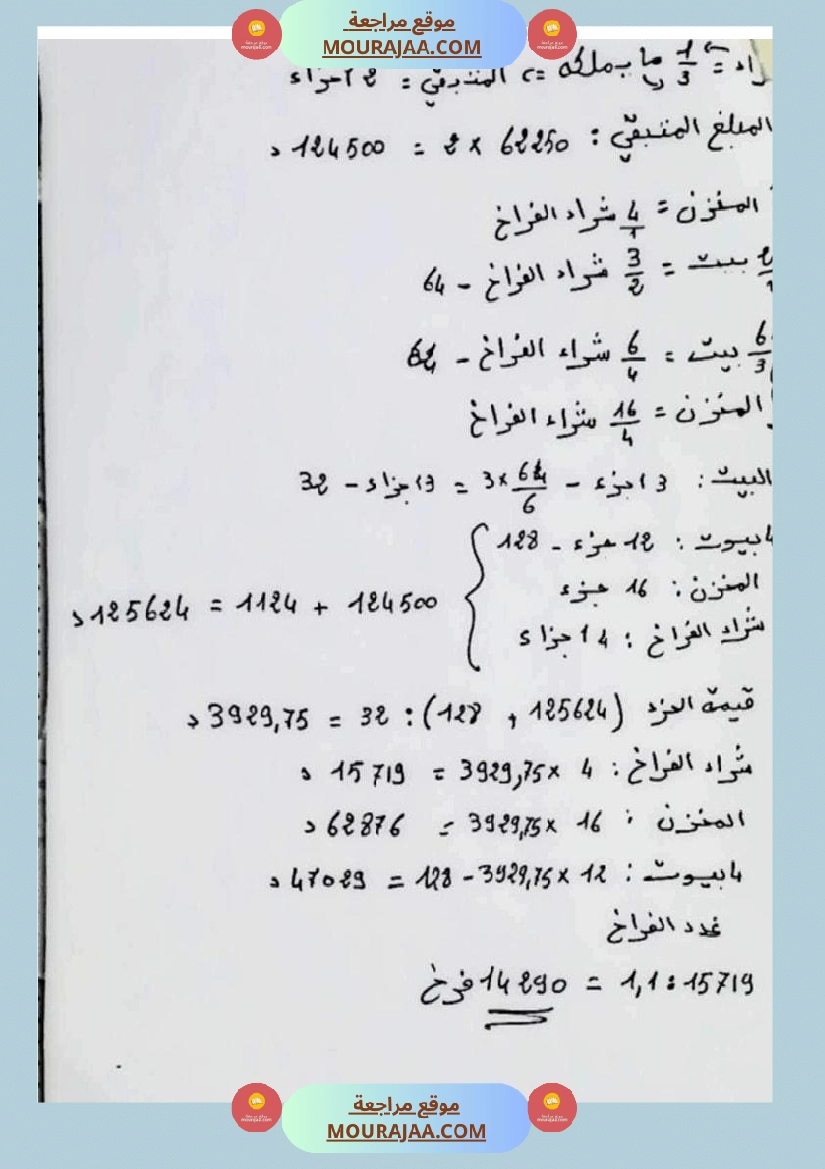 موقع مراجعة
MOURAJAA.COM
راد = 1/3 ما يملكه => المتبقي = 2 أجزاء
المبلغ المتبقي : 62250 × 2 = 124500 د
المخزن = 4/1 شراء الفراخ
بيت = 3/2 شراء الفراخ - 64
6/3 بيت = 6/4 شراء الفراخ - 64
المخزن = 16/4 شراء الفراخ
البيت : 3 اجزء - 3×64/6 = 3 اجزاء - 32
4 بيوت : 12 جزء - 128
المخزن : 16 جزء
124500 + 1124 = 125624 د
شراء الفراخ : 4 اجزاء
قيمة الجزء (125624 , 128) : 32 = 3929,75 د
شراء الفراخ : 4 ×3929,75 = 15719 د
المخزن : 16 ×3929,75 = 62876 د
4 بيوت : 12 ×3929,75 - 128 = 47029 د
عدد الفراخ
15719 : 1,1 = 14290 فرخ
موقع مراجعة
MOURAJAA.COM